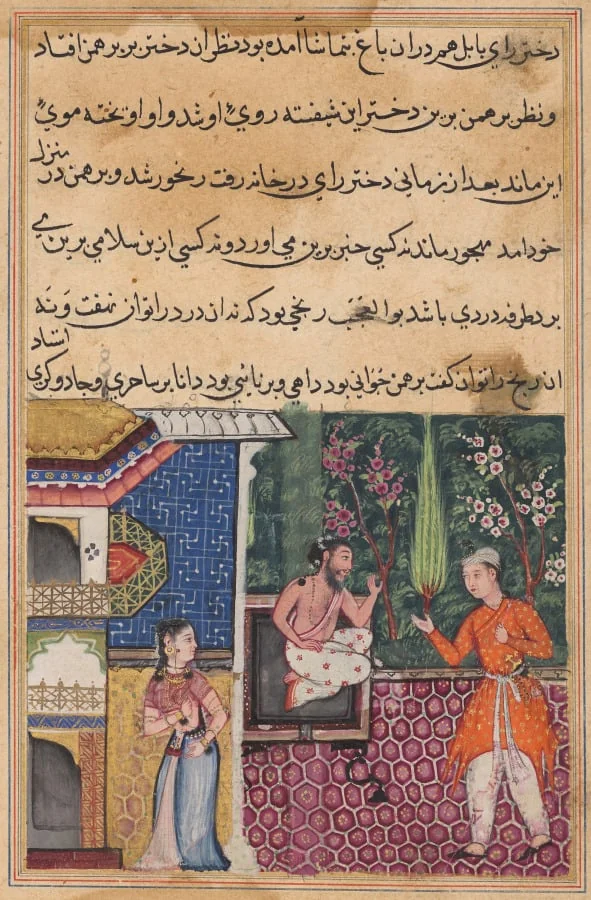 دختر رای بابل هم دران باغ بتماشا آمده بود نظر ان دختر بر برهمن افتاد
و نظر برهمن برین دختر این شیفته روی او شد و او اوتخته موی
این ماند بعد ان زمانی دختر رای در خانه رفت رنجور شد و برهمن در منزل
خود امد مهجور ماند نه کسی خبر برین می اورد و نه کسی ازین سلامی برین
بر دطرفه دردی باشد بوالعجب رنجی بود که نه ان درد را توان نهفت و نه
ان رنج را توان گفت برهمن جوانی بود داهی و برنایی بود دانا بر ساحری و جادوکری استاد